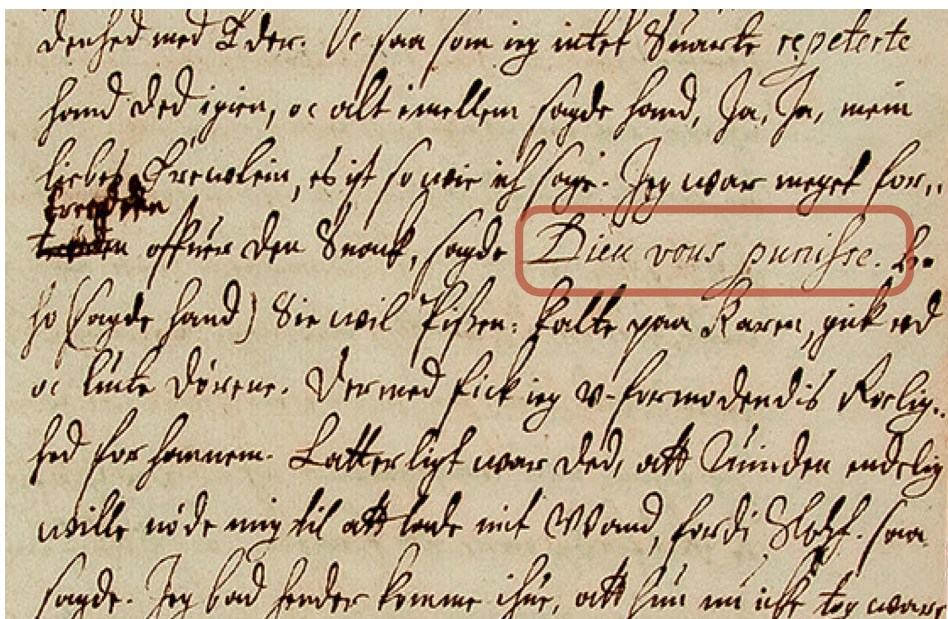 denhed med Eder. Oc saa som ieg intet Suarte repeterte
hand ded igien, oc alt imellem sagde hand, Ja, Ja, mein
liebes Freulein, es ist so wie ich sage. Jeg war meget for„
treeden
offuer den Snack, sagde Dieu vous punisse. Ho
ho (sagde hand) Sie wil Pißen: kalte paa Karen, gick ud
oc lucte Dørene. Dermed fick ieg v-formodendis Roelig„
hed for hannem. Latterligt war ded, att Quinden endelig
wille nøde mig til att lade mit Wand, fordi Slosf. saa
sagde. Jeg bad hender komme ihue, att hun nu icke tog ware